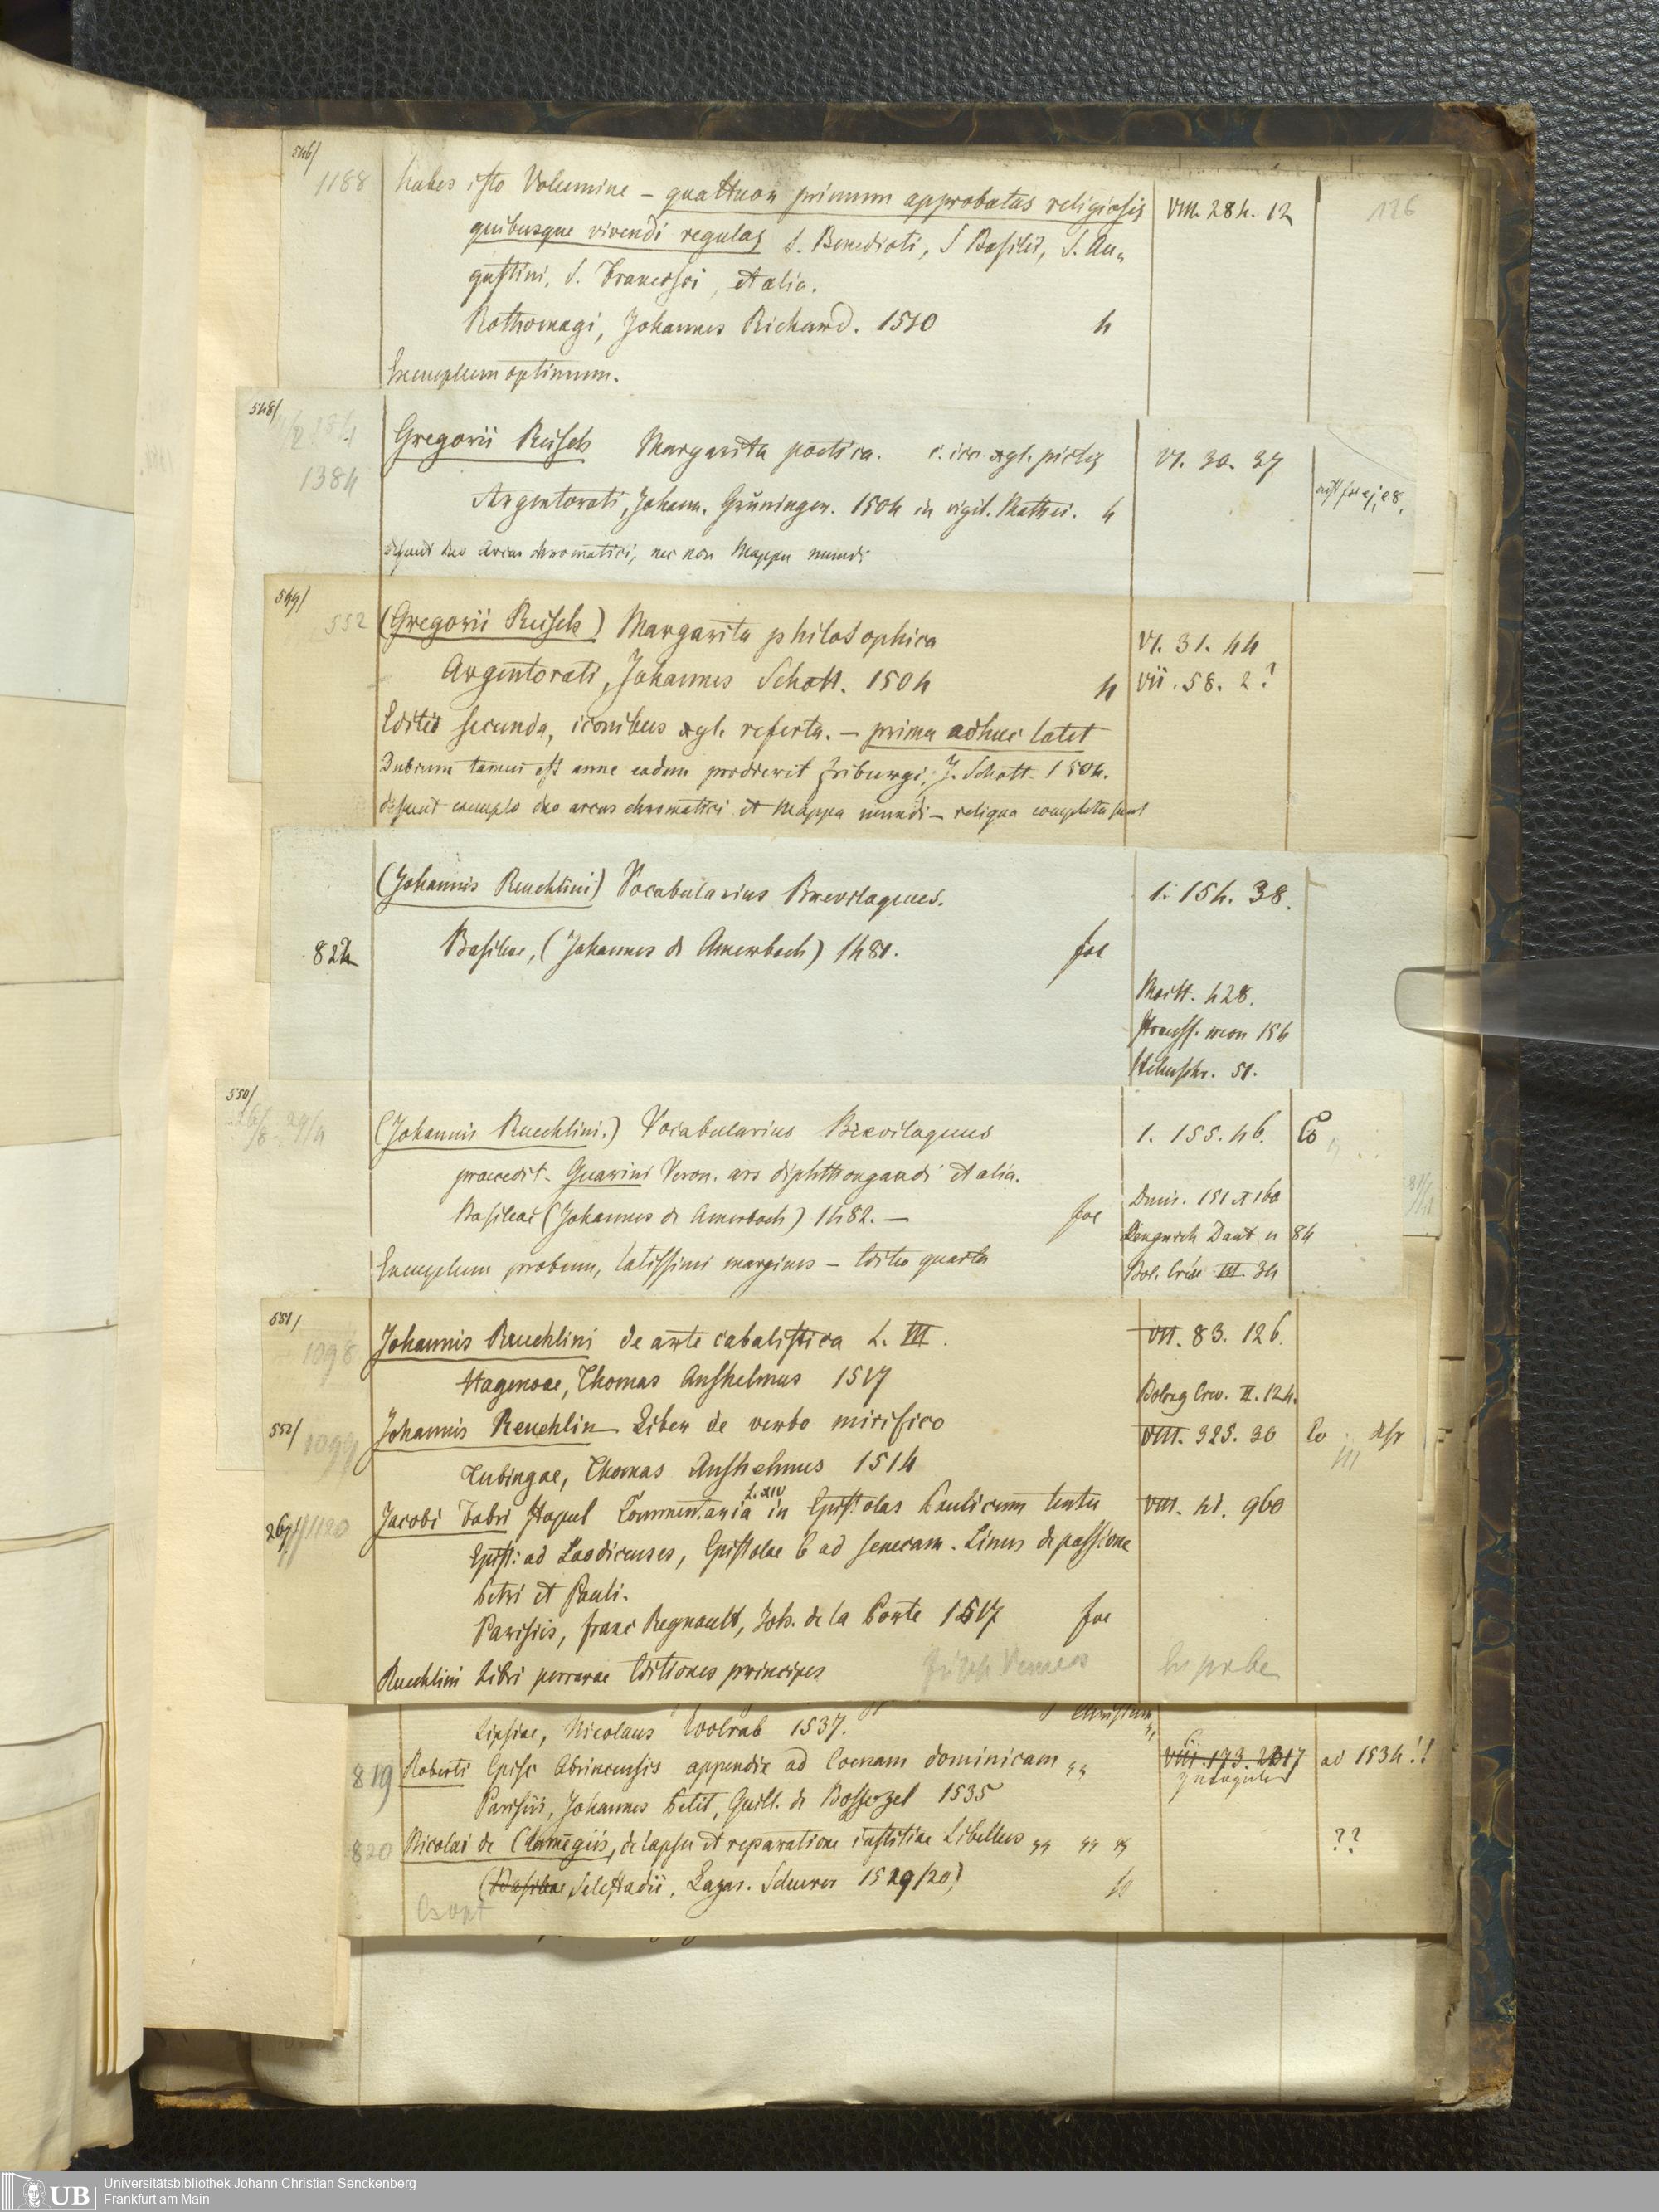 546/
1188 habes isto Volumine – quattuor primum approbatas religiosis VIII. 284. 12 126
quibusque vivendi regulas S. Benedicti, S Basilii, S. Au„
gustini, S. Francisci, et alia.
Rothomagi, Johannes Richard. 1510 4
Exemplum optimum.
548/
1384 Gregorii Reisch Margarita poetica. c. icc. xyl. pictis VI. 30. 37
Argentorati, Johann. Grüninger. 1504 in vigil. Mathei. 4
desunt duo arcus chromatici, nec non Mappa mundi
549/
552 (Gregorii Reisch) Margarita philosophica VI. 31. 44
Argentorati, Johannes Schott. 1504 4 VII. 58. 2?
Editio secunda, iconibus xyl. referta. – prima adhuc latet
Dubium tamen est anne eadem prodierit Friburgi, J. Schott. 1504.
desunt exemplo duo arcus chromatici et Mappa mundi – reliqua completa sunt
(Johannis Reuchlini) Vocabularius Brevilaquus. 1. 154. 38.
824 Basileae, (Johannes de Amerbach) 1481. fol
Maitt. 428.
154
51.
550/
(Johannis Reuchlini.) Vocabularius Brevilaquus 1. 155. 46. Co
praecedit. Guarini Veron. ars diphthongandi et alia.
Basileae (Johannes de Amerbach) 1482. – fol Denis. 151 et 160
84
Exemplum probum, latissimi marginis – Editio quarta Bol. Crev III 34
551/
1098 Johannis Reuchlini de arte cabalistica L. III. VII. 83. 126.
Hagenoae, Thomas Anshelmus 1517 Bolong Crev. II. 124.
552/
1099 Johannis Reuchlin Liber de verbo mirifico VIII. 325. 30 Co
Tubingae, Thomas Anshelmus 1514
267/ 1120 Jacobi Fabri Stapul Commentaria L. XIV in Epistolas Paulicum textu VIII. 41. 960
Epist: ad Laodicenses, Epistolae 6 ad Senecam. Linus de passione
Petri et Pauli.
Parisiis, franc Regnault, Joh. de la Porte 1517 fol
Reuchlini Libri perrarae Editiones principes
Lipsiae, Nicolaus Wolrab 1537. Christum
819 Roberti Episc Abrincensis appendix ad Coenam dominicam „ VIII. 173. 2317 ad 1534!!
Parisiis, Johannes Petit, Guill. de Bossozel 1535
820 Nicolai de Clamegiis, de lapsu et reparatione iustitiae Libellus „ „ „ ??
(Basileae Selestadii, Lazar. Schurer 1529/20)
UB Universitätsbibliothek Johann Christian Senckenberg
Frankfurt am Main